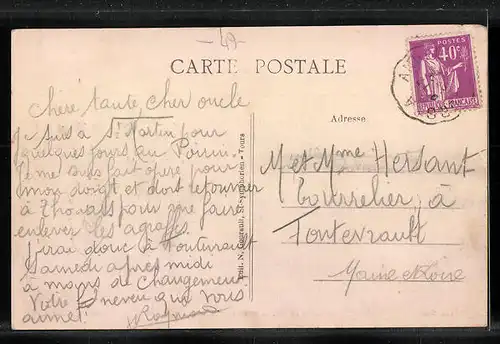 49
CARTE POSTALE
POSTES
40c
Chère tante, cher oncle
Je suis à St Martin pour
quelques jours au
Je me suis fait opéré pour
mon doigt et doit retourner
à Thouars pour que faire
enlever les agrafes
J'irai donc à Fontevrault
Samedi après midi
à moins de changement
Votre neveu qui vous
aime!
Raymond
Edit. N. St-Symphorien - Tours
Adresse
M et Mme Hersant
Bourrelier à
Fontevrault
Maine et Loire